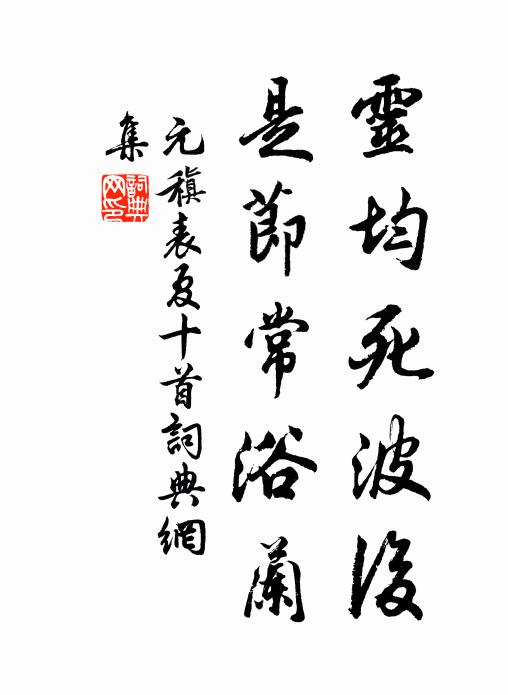 靈均死波後
是節常浴蘭
元稹表夏十首詞典網
集
詞典網印